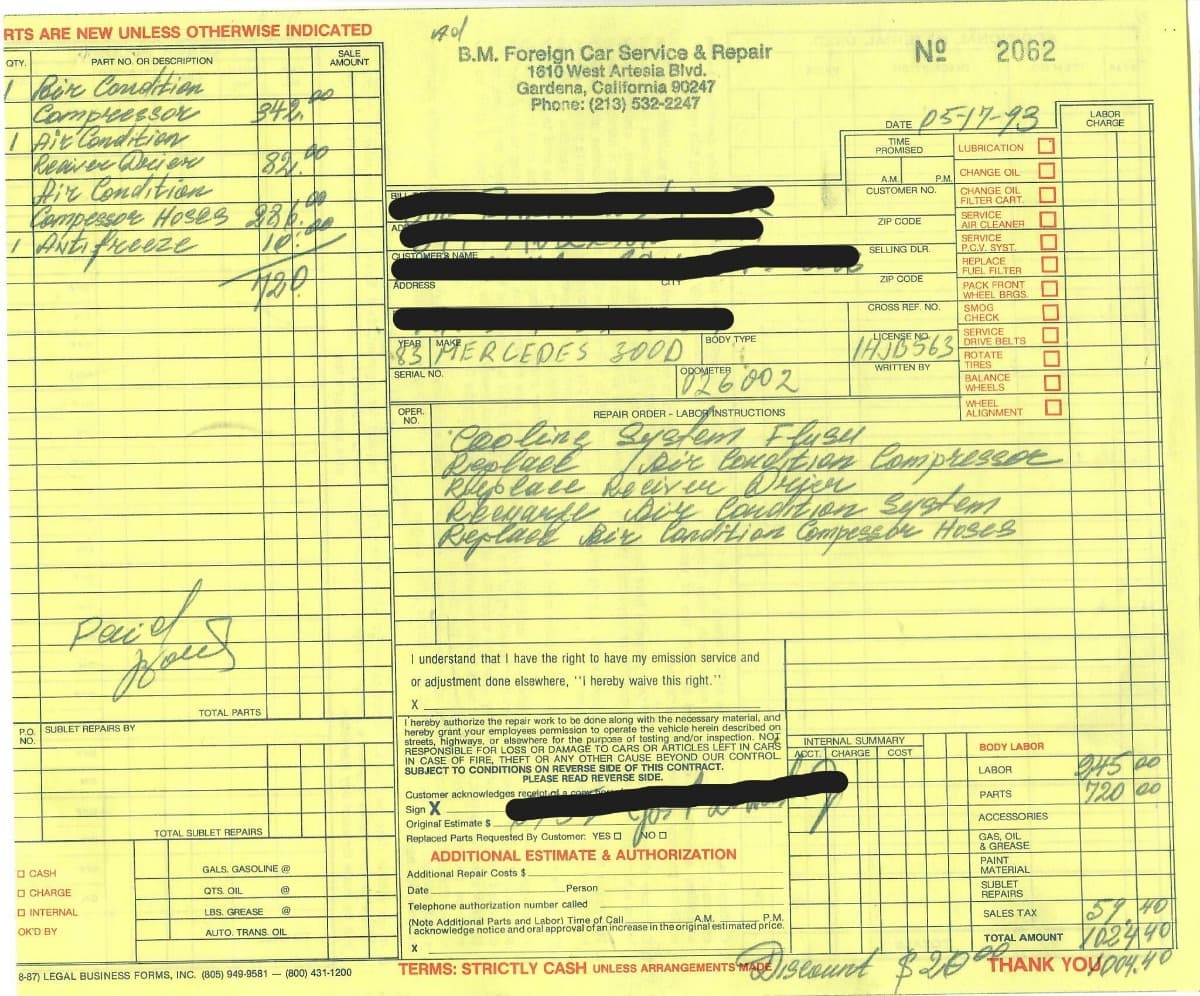 RTS ARE NEW UNLESS OTHERWISE INDICATED
QTY. PART NO. OR DESCRIPTION SALE AMOUNT
1 Air Condition
Compressor 342.00
1 Air Condition
Reciver Drier 82.00
Air Condition
Compessor Hoses 286.00
1 Antifreeze 10.00
720.
Paid
TOTAL PARTS
P.O. NO. SUBLET REPAIRS BY
TOTAL SUBLET REPAIRS
CASH
CHARGE
INTERNAL
OK'D BY
GALS. GASOLINE @
QTS. OIL @
LBS. GREASE @
AUTO. TRANS. OIL
8-87) LEGAL BUSINESS FORMS, INC. (805) 949-9581 — (800) 431-1200
B.M. Foreign Car Service & Repair
1610 West Artesia Blvd.
Gardena, California 90247
Phone: (213) 532-2247
Nº 2062
DATE 05-17-93
TIME PROMISED
A.M. P.M.
CUSTOMER NO.
ZIP CODE
SELLING DLR.
ZIP CODE
CROSS REF. NO.
CUSTOMER'S NAME
ADDRESS
CITY
YEAR 83 MAKE MERCEDES 300D BODY TYPE
LICENSE NO. 1HJB563
SERIAL NO.
ODOMETER 026002
WRITTEN BY
LABOR CHARGE
LUBRICATION
CHANGE OIL
CHANGE OIL FILTER CART.
SERVICE AIR CLEANER
SERVICE P.C.V. SYST.
REPLACE FUEL FILTER
PACK FRONT WHEEL BRGS.
SMOG CHECK
SERVICE DRIVE BELTS
ROTATE TIRES
BALANCE WHEELS
WHEEL ALIGNMENT
OPER. NO. REPAIR ORDER - LABOR INSTRUCTIONS
Cooling System Flush
Replace Air Condition Compressor
Replace Reciver Drier
Recharge Air Condition System
Replace Air Condition Compessor Hoses
I understand that I have the right to have my emission service and
or adjustment done elsewhere, "i hereby waive this right."
X
I hereby authorize the repair work to be done along with the necessary material, and
hereby grant your employees permission to operate the vehicle herein described on
streets, highways, or elsewhere for the purpose of testing and/or inspection. NOT
RESPONSIBLE FOR LOSS OR DAMAGE TO CARS OR ARTICLES LEFT IN CARS
IN CASE OF FIRE, THEFT OR ANY OTHER CAUSE BEYOND OUR CONTROL.
SUBJECT TO CONDITIONS ON REVERSE SIDE OF THIS CONTRACT.
PLEASE READ REVERSE SIDE.
Customer acknowledges receipt of a copy
Sign X
Original Estimate $
Replaced Parts Requested By Customer: YES NO
ADDITIONAL ESTIMATE & AUTHORIZATION
Additional Repair Costs $
Date Person
Telephone authorization number called
(Note Additional Parts and Labor) Time of Call A.M. P.M.
I acknowledge notice and oral approval of an increase in the original estimated price.
X
TERMS: STRICTLY CASH UNLESS ARRANGEMENTS MADE
INTERNAL SUMMARY
ACCT. CHARGE COST
BODY LABOR
LABOR 245.00
PARTS 720 00
ACCESSORIES
GAS, OIL & GREASE
PAINT MATERIAL
SUBLET REPAIRS
SALES TAX 59.40
TOTAL AMOUNT 1024.40
Discount $20.00 THANK YOU 1004.40